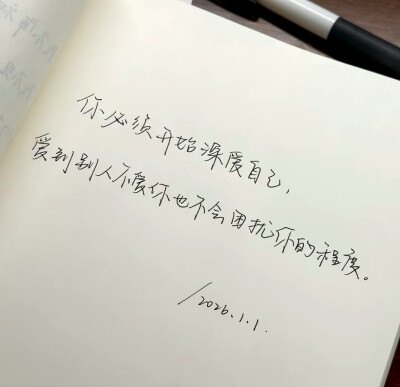 你必须开始深爱自己,
爱到别人不爱你也不会困扰你的程度。
/2026.1.1.